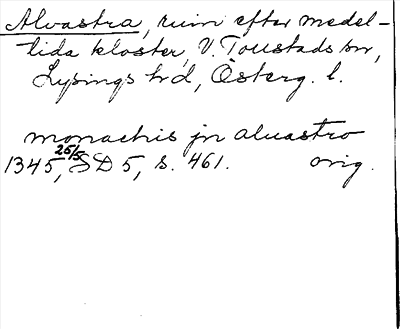 Alvastra, ruin efter medel-
tida kloster, V. Toustads sn,
Lysings hd, Österg. l.
monachis jn aluastro
1345 25/5, SD 5, s. 461. orig.